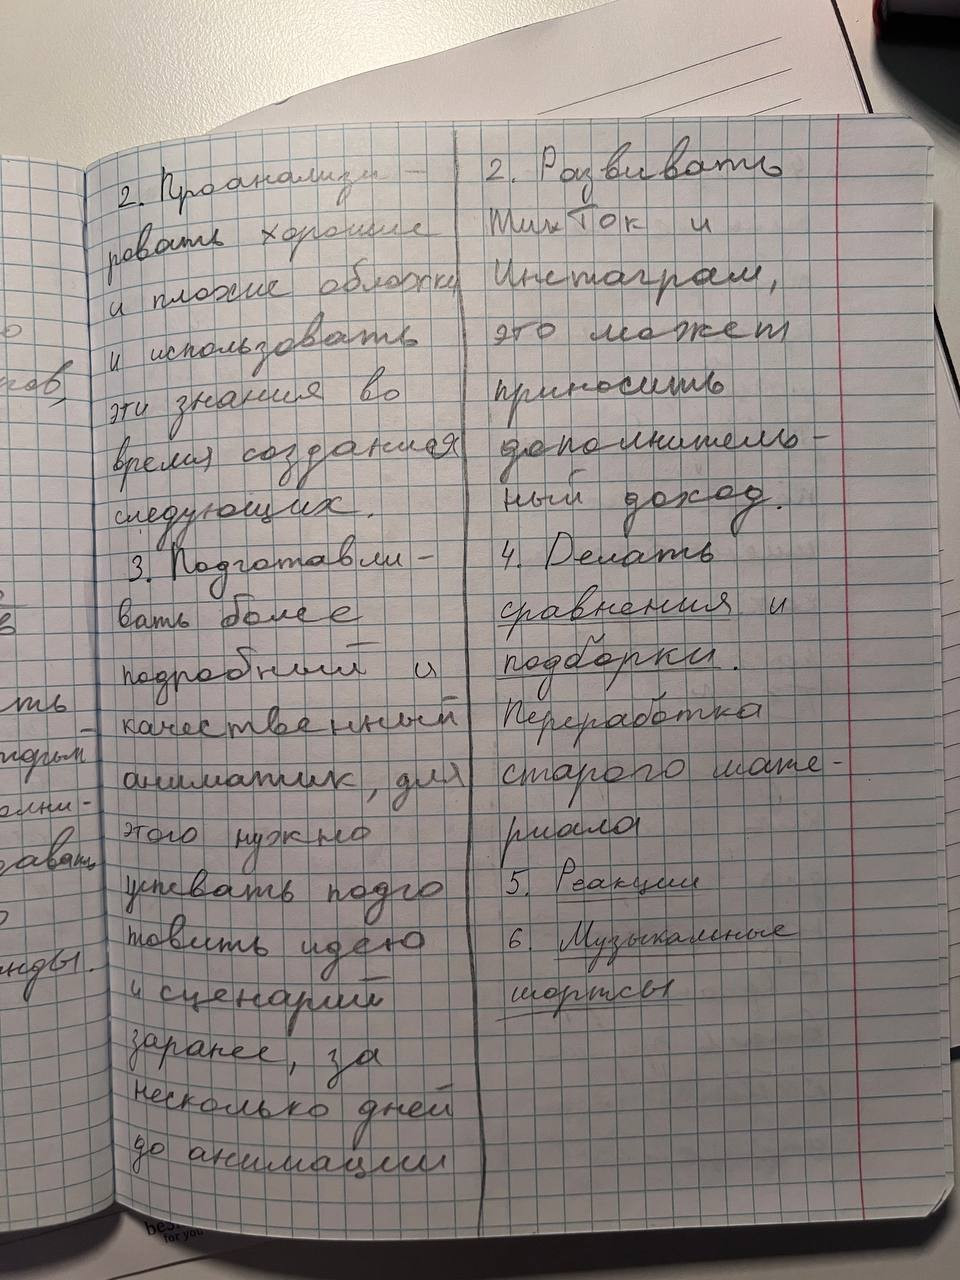 2. Проанализи-
ровать хорошие
и плохие обложки
и использовать
эти знания во
время создания
следующих.
3. Подготавли-
вать более
подробный и
качественный
аниматик, для
этого нужно
успевать подго
товить идею
и сценарий
заранее, за
несколько дней
до анимации
2. Развивать
ТикТок и
Инстаграм,
это может
приносить
дополнитель-
ный доход.
4. Делать
сравнения и
подборки.
Переработка
старого мате-
риала
5. Реакции
6. Музыкальные
шортсы
нов,
ть
лни-
нды.
for you